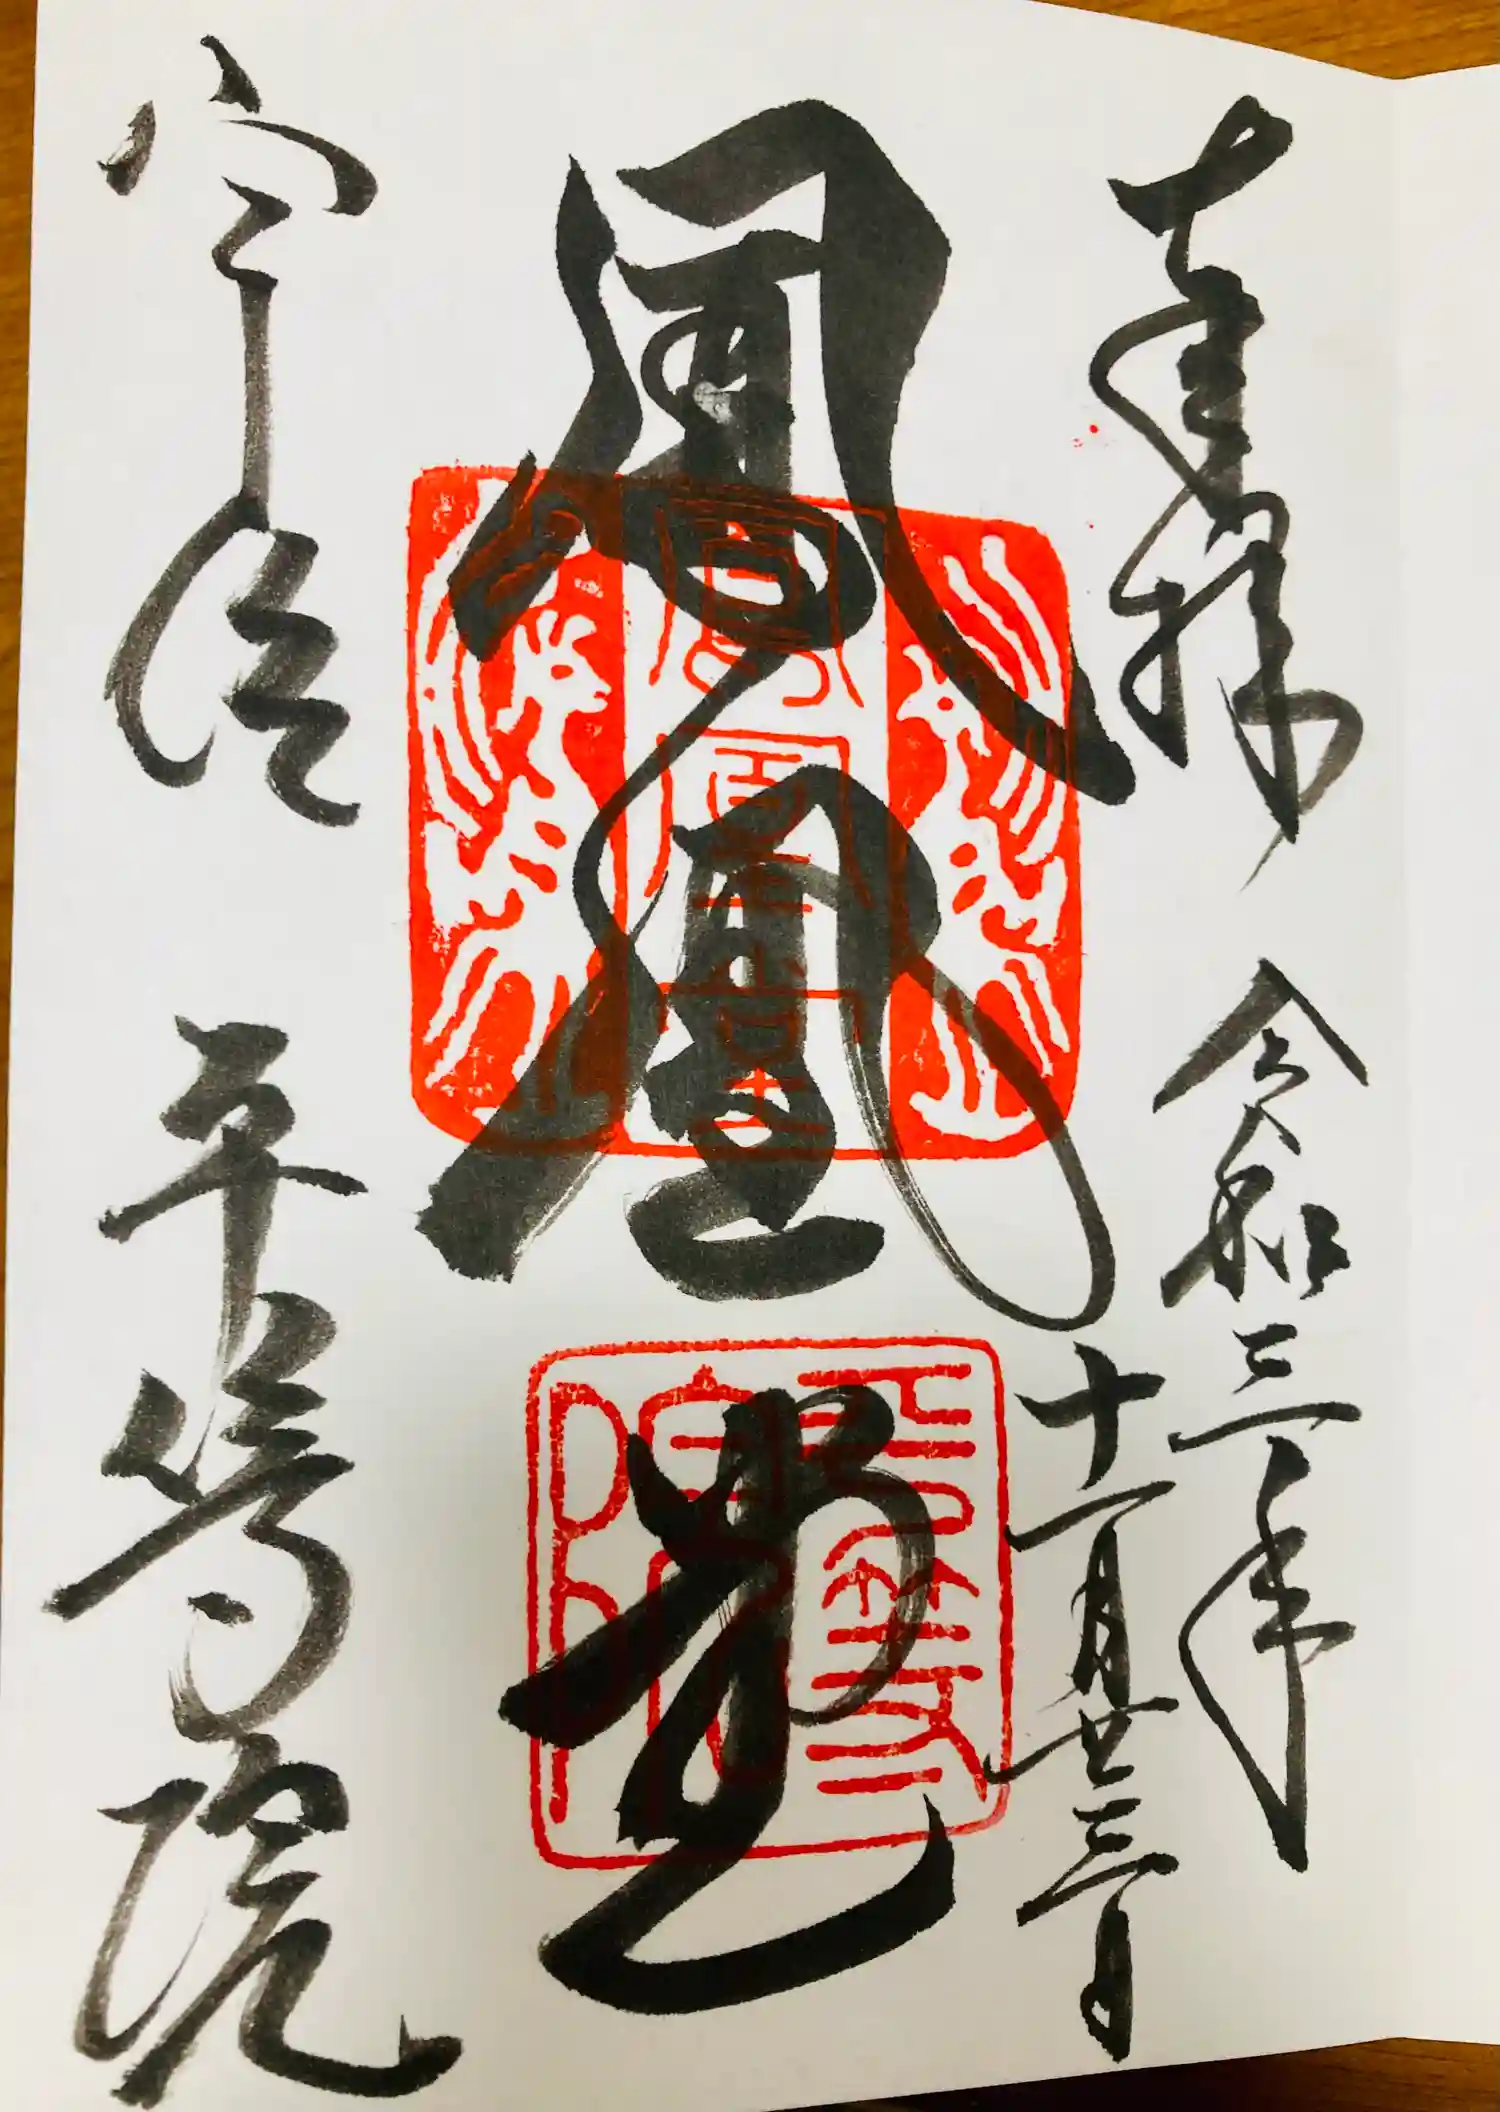 奉拝 令和三年
十一月廿三日
鳳凰堂
宇治 平等院
鳳凰堂
平等院